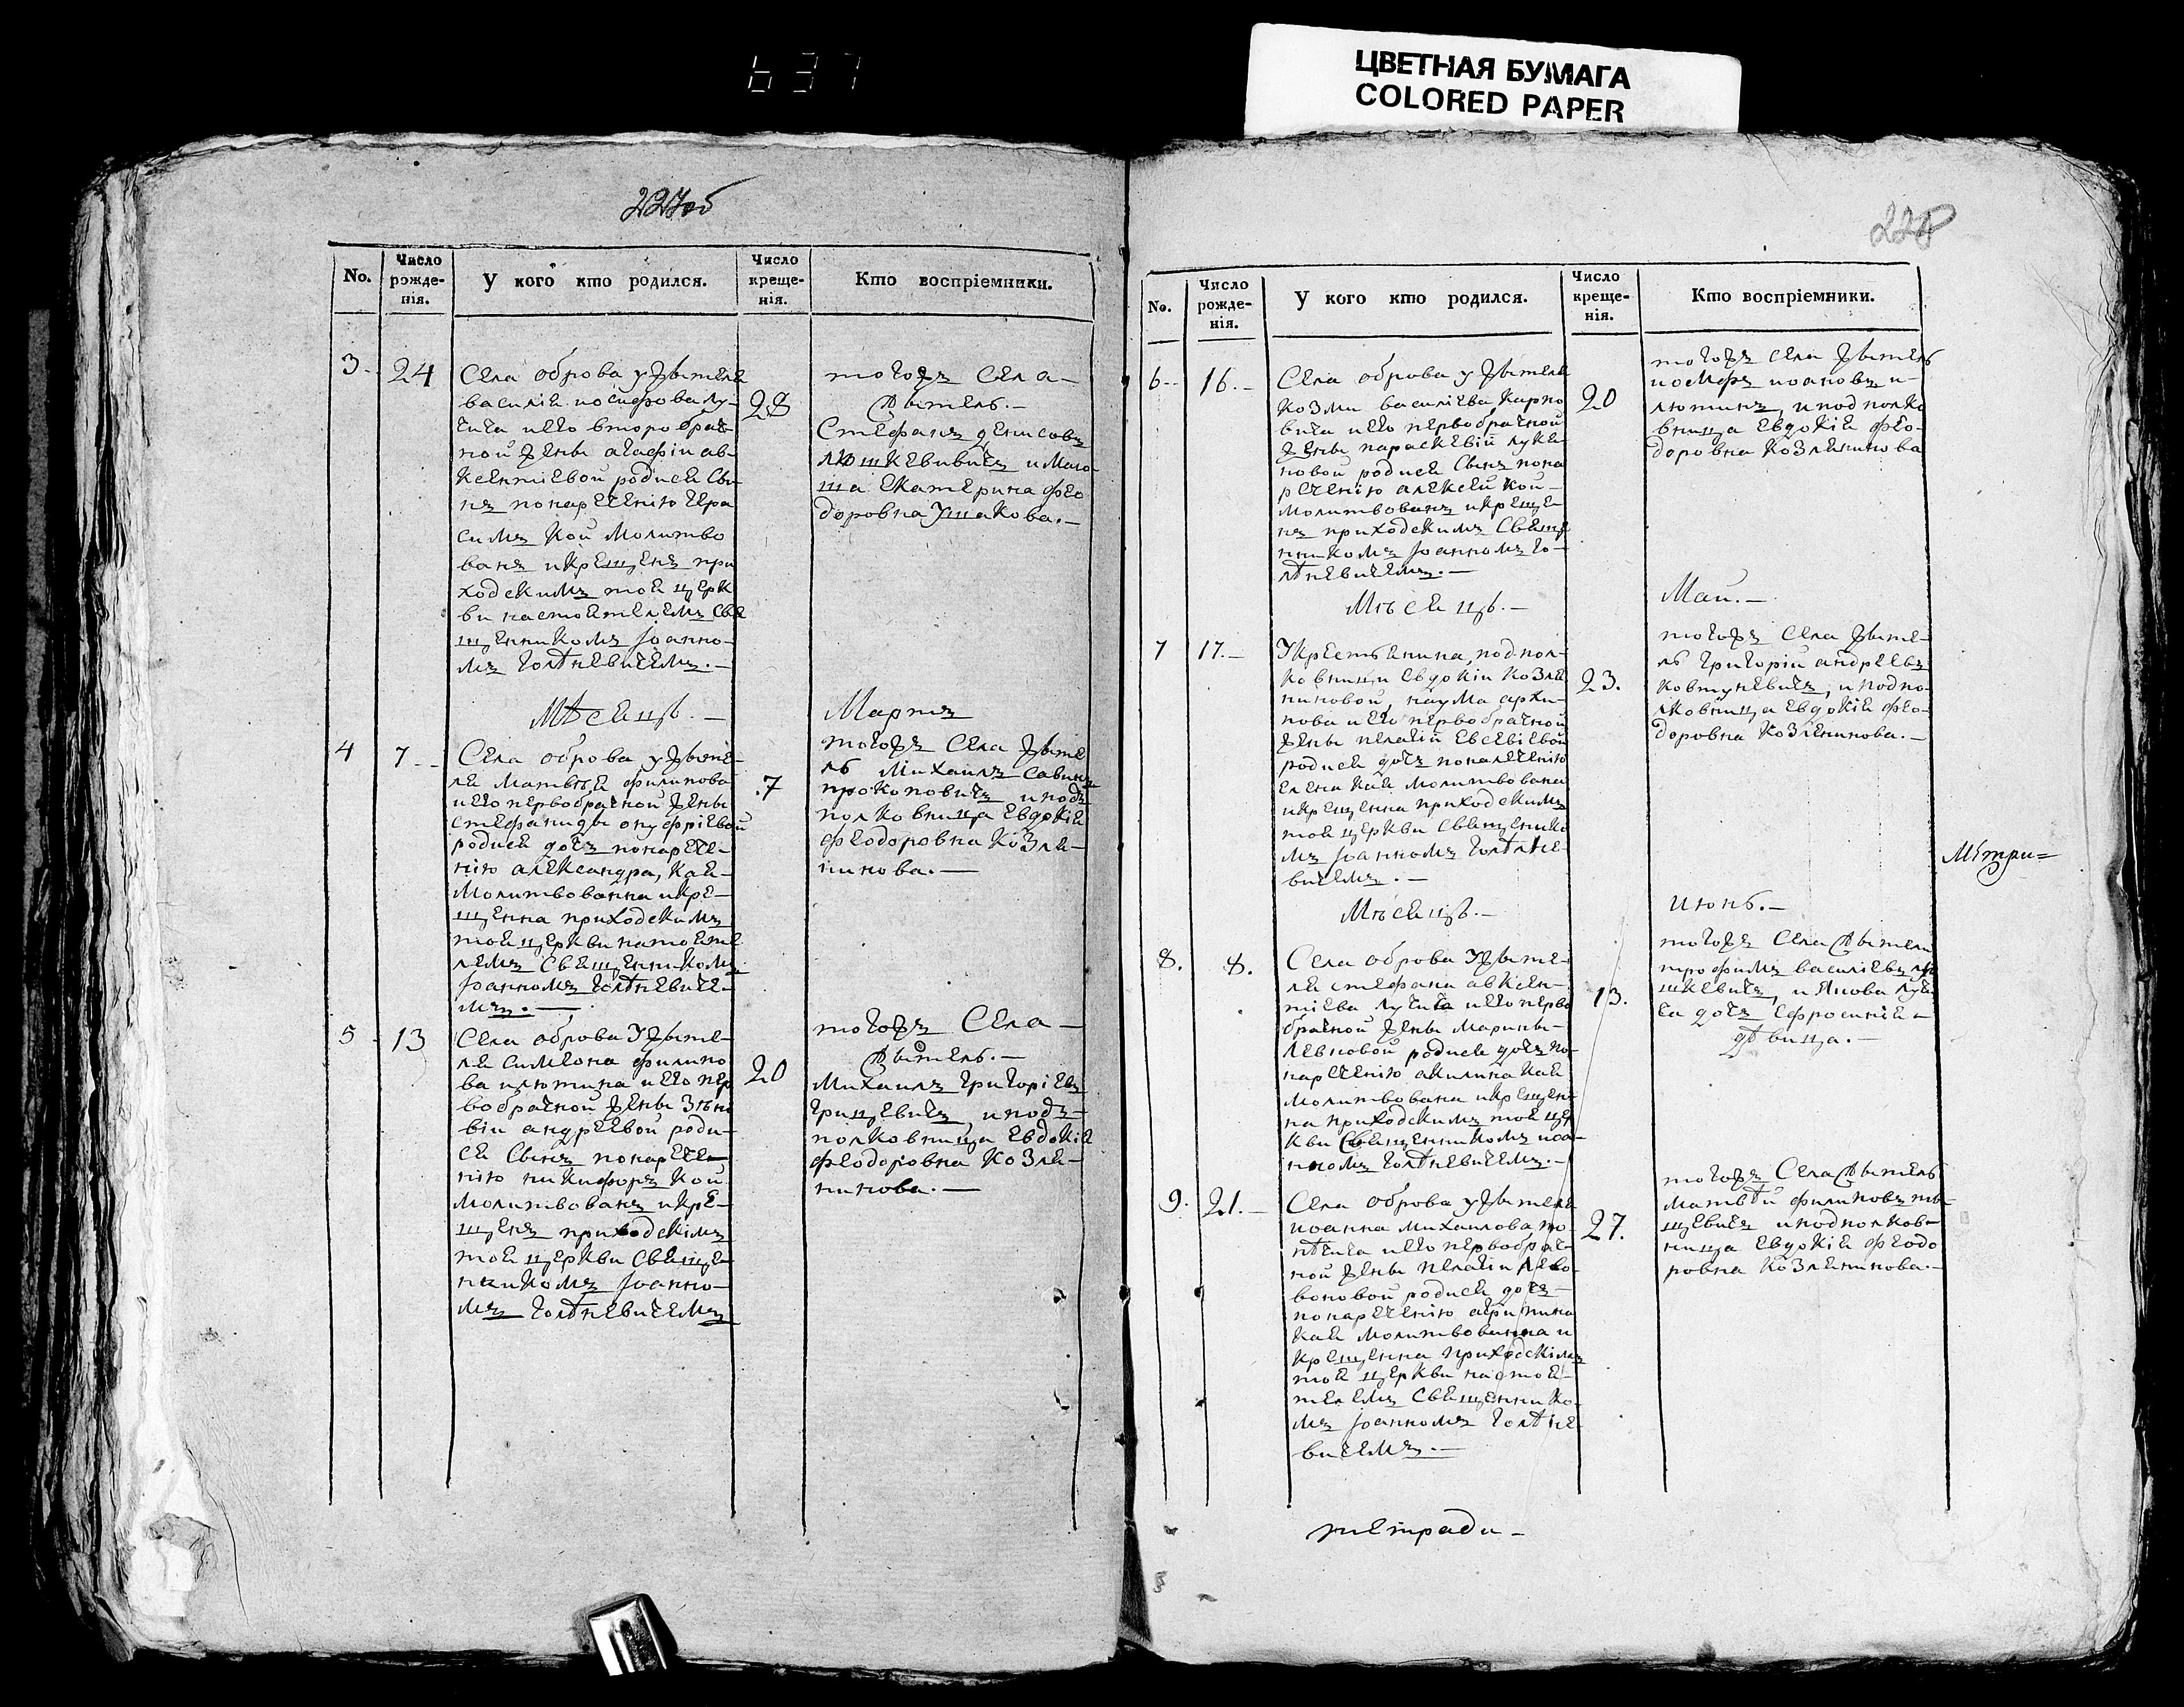 637
ЦВЕТНАЯ БУМАГА
COLORED PAPER
227об
No.
Число рожденія.
У кого кто родился.
Число крещенія.
Кто воспріемники.
3.
24
Села оброва у жителя
василія иосифова лу-
чича и его второбрач-
ной жены агафіи ав-
ксентіевой родися сы-
нъ понареченію гера
симъ кой молитво
ванъ икрещенъ при
ходскимъ тоя церк
ви настоятелемъ свя
щенникомъ Іоанно-
мъ голѣневичемъ.-
28
тогожъ Села-
житель.-
Стефанъ денисовъ
екатерина фео
доровна Ушакова.-
Мѣсяцъ.-
Мартъ
4
7
Села оброва у жите-
ля матвѣя филипова
и его первобрачной жены
стефаниды онуфріевой
родися дочъ понарече-
нію александра, кая
молитвованна икре-
щенна приходскимъ
тоя церкви натояте
лемъ священникомъ
Іоанномъ голѣневиче-
мъ.-
7
тогожъ Села жите
ль Михаилъ савинъ
прокоповичъ иподъ
полковница Евдокія
феодоровна Козля-
нинова.-
5
13
Села оброва Ужите-
ля симеона филипо
ва илютича и его пер
вобрачной жены Зѣно
віи андреевой роди-
ся сынъ понарече-
нію никифоръ кой
молитвованъ икре-
щенъ приходскімъ
тоя церкви священ
никомъ Іоанно-
мъ голѣневичемъ
20
тогожъ Села-
житель.-
Михаилъ григоріевъ
грицевичъ, иподъ-
полковница Евдокія
феодоровна Козля-
нинова.-
228
No.
Число рожденія.
У кого кто родился.
Число крещенія.
Кто воспріемники.
6.
16.-
Села оброва у жителя
козми василіева карпо
вича и его первобрачной
жены параскевій луки-
новой родися сынъ пона
реченію алексей кой-
молитвованъ икреще-
нъ приходскимъ свяще
нникомъ Іоанномъ го-
лѣневичемъ.-
20
тогожъ села житель
иосифъ иоановъ и-
лютичъ, иподполко
вница Евдокія фео-
доровна Козлянинова
Мѣсяцъ.-
Май.-
7
17.-
Укрестьянина, подпол-
ковницы Евдокіи козля
ниновой, наума архи-
пова и его первобрачной
жены пелагіи Евсевіевой
родися дочъ понаречению
елена кая молитвована
икрещенна приходскимъ
тоя церкви священнико
мъ Іоанномъ голѣне-
вичемъ.-
23.
тогожъ Села жите-
ль григорій андреевъ
ковтуневичъ, иподпо-
лковница Евдокія фео-
доровна Козлянинова.-
Метри=
Мѣсяцъ.-
Июнь.-
8.
8.
Села оброва Ужите-
ля стефана авксен-
тіева лучича и его перво
брачной жены марины-
левковой родися дочъ по-
нареченію акилина кая
молитвована икрещен-
на приходскимъ тоя цер
кви священникомъ иоа-
нномъ голѣневичемъ.-
13.
тогожъ Села жители
трофимъ василіевъ
и Якова лучи
ча дочъ ефросинія-
дѣвица.-
9.
21.-
Села оброва у жителя
иоанна михаилова
и его первобрач-
ной жены пелагіи
родися дочъ-
понареченію агрипина
кая молитвованна и
крещенна приходскімъ
тоя церкви настоя-
телемъ священнико-
мъ Іоанномъ голѣне-
вичемъ.-
27.
тогожъ Села житель
матвѣй филиповъ
иподполков-
ница Евдокія феодо
ровна козлянинова.-
тетради-